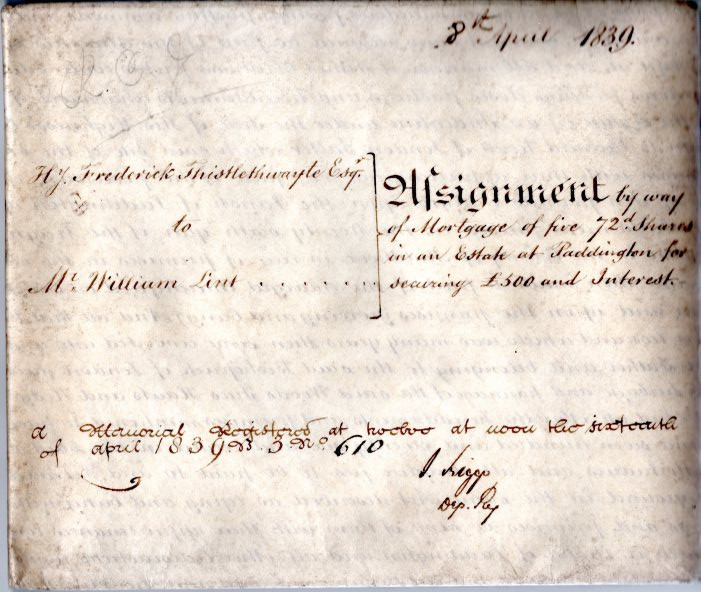 8th April 1839.
Hy. Frederick Thistlethwayte Esqr.
to
Mr. William Lint
Assignment by way
of Mortgage of five 72d. Shares
in an Estate at Paddington for
securing £500 and Interest.
a Memorial Registered at twelve at noon the sixteenth
of april 1839 B. 3 No. 610
J. Riggs
Dep. Reg